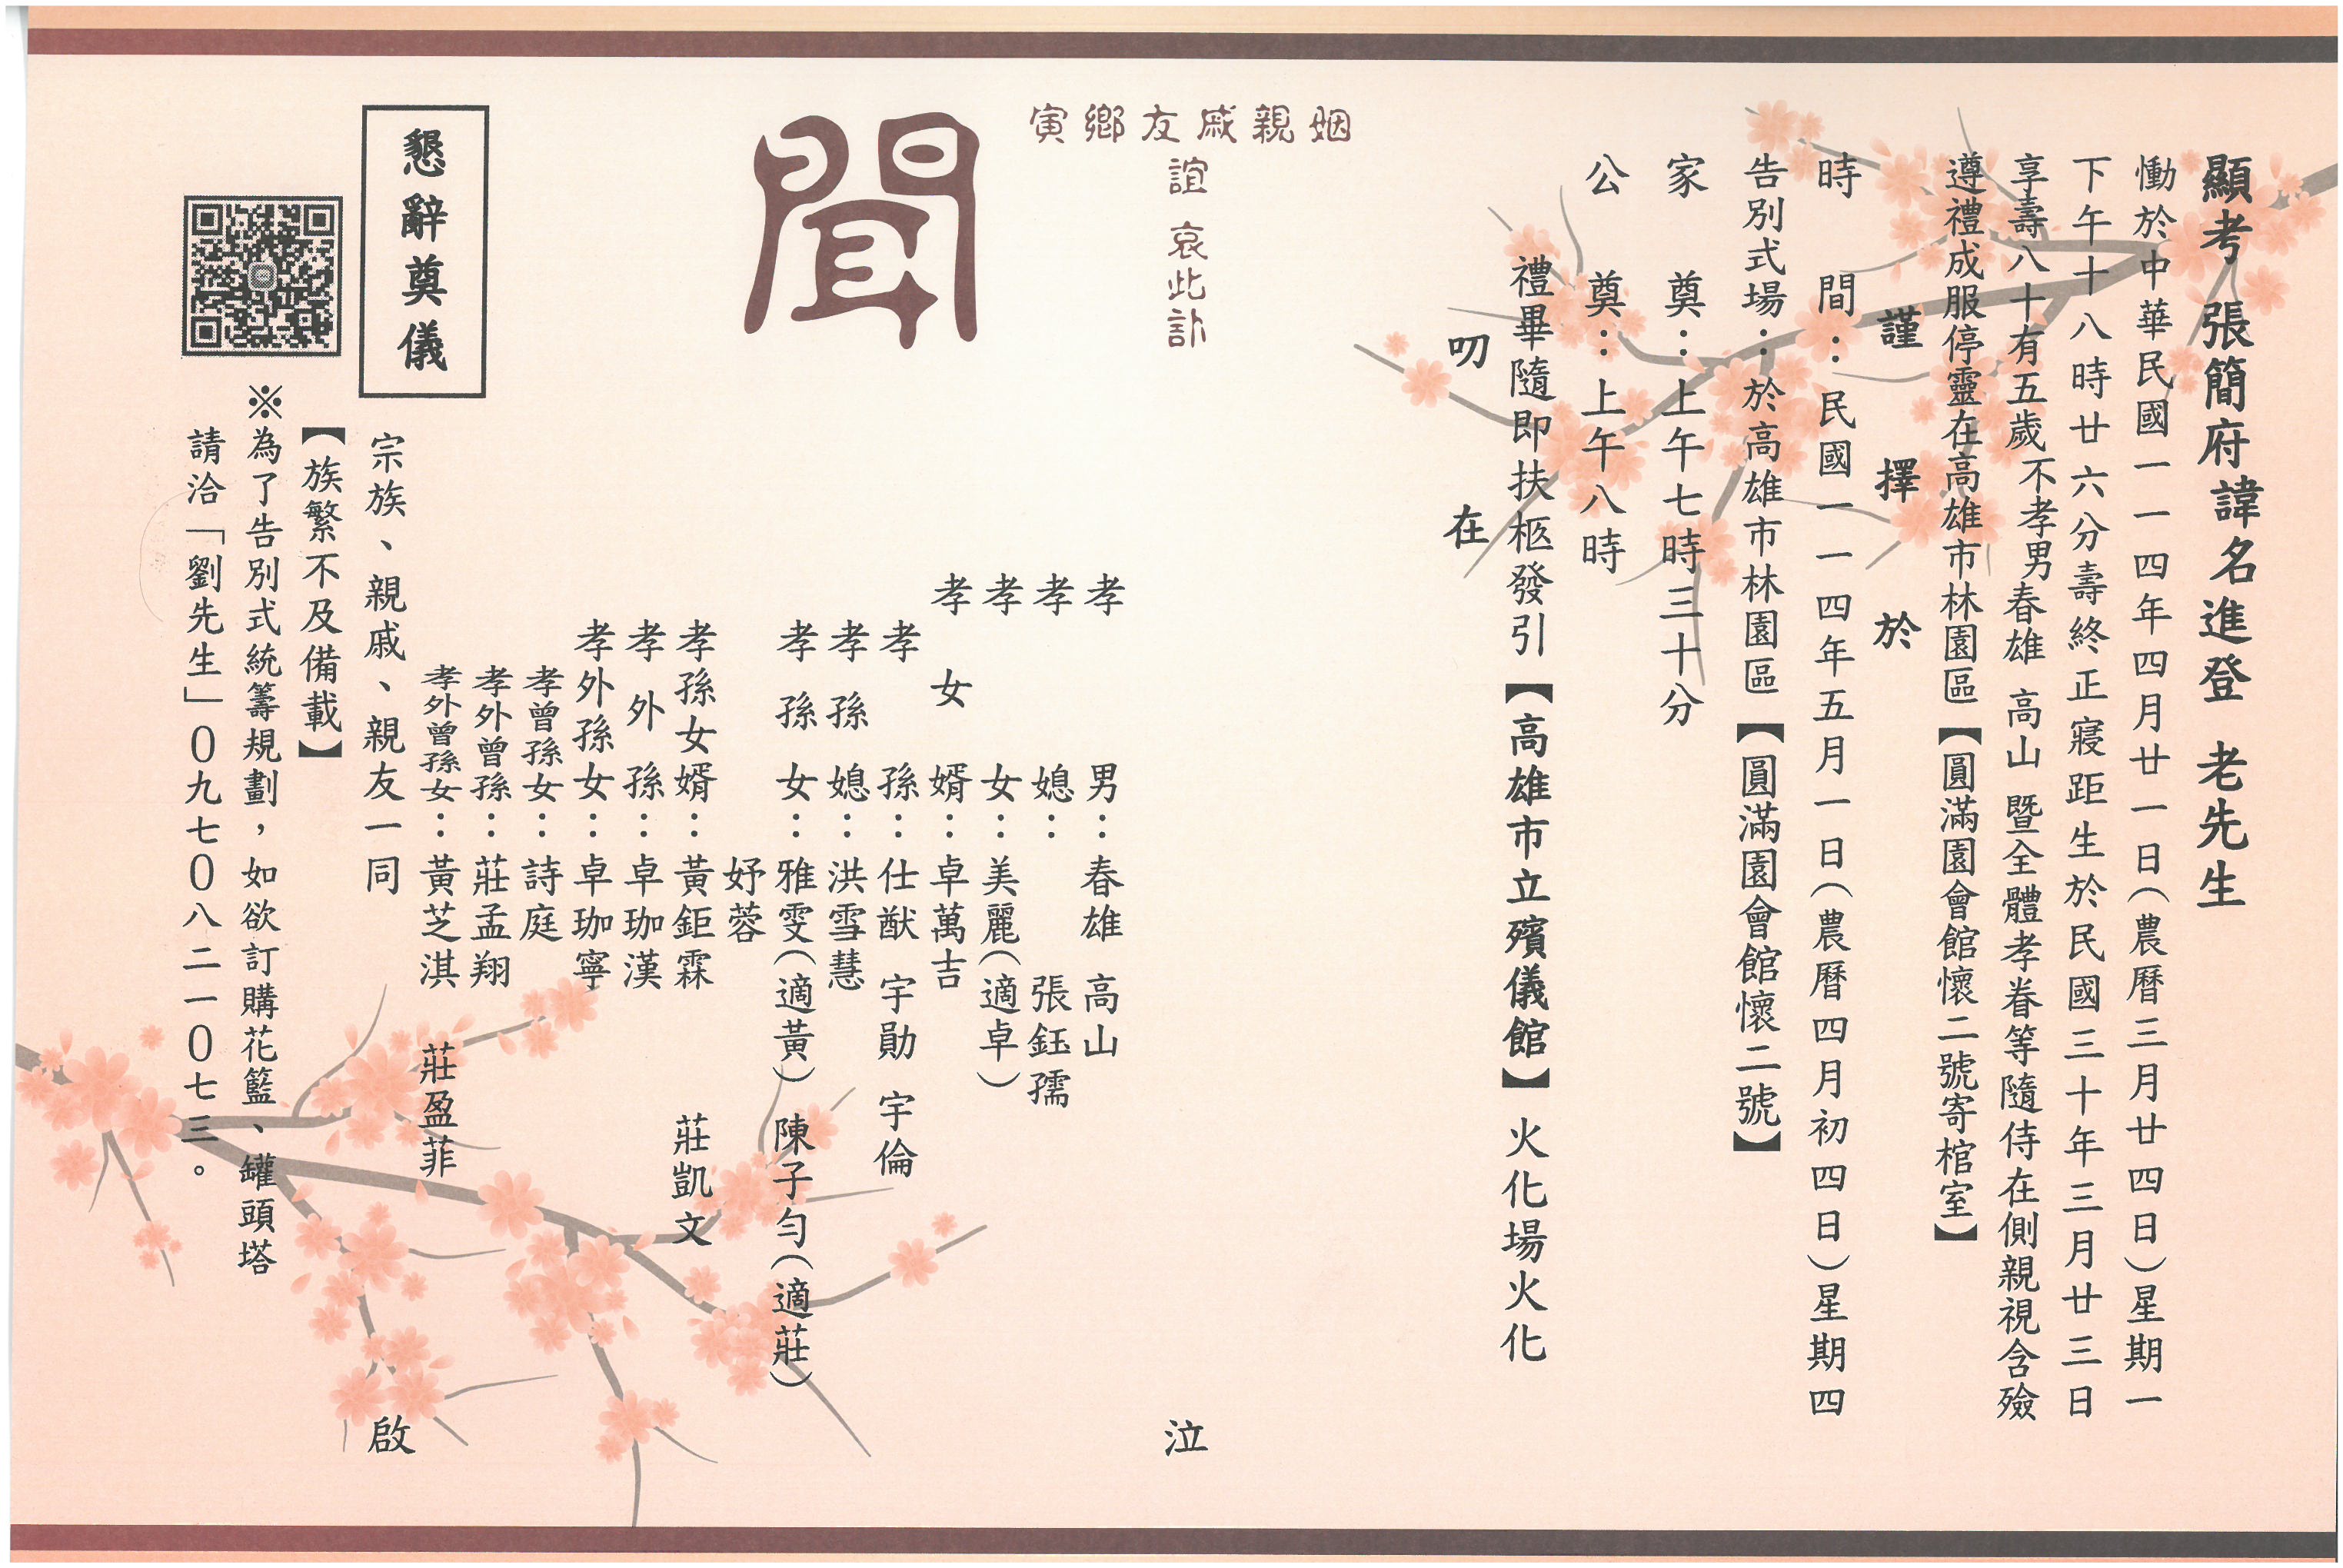 顯考 張簡府諱名進登 老先生
慟於中華民國一一四年四月廿一日(農曆三月廿四日)星期一
下午十八時廿六分壽終正寢距生於民國三十年三月廿三日
享壽八十有五歲 不孝男 春雄 高山 暨全體孝眷等隨侍在側親視含殮
遵禮成服停靈在高雄市林園區【圓滿園會館懷二號寄棺室】
謹擇於
時間：民國一一四年五月一日(農曆四月初四日)星期四
告別式場：於高雄市林園區【圓滿園會館懷二號】
家奠：上午七時三十分
公奠：上午八時
禮畢隨即扶柩發引【高雄市立殯儀館】火化場火化
叨在
姻親戚友鄉寅
誼 哀此訃
聞
泣
孝男：春雄 高山
孝媳：張鈺孺
孝女：美麗(適卓)
孝女婿：卓萬吉
孝孫：仕猷 宇勛 宇倫
孝孫媳：洪雪慧
孝孫女：雅雯(適黃) 陳子勻(適莊)
妤蓉
孝孫女婿：黃鉅霖 莊凱文
孝外孫：卓珈漢
孝外孫女：卓珈寧
孝曾孫女：詩庭
孝外曾孫：莊孟翔
孝外曾孫女：黃芝淇 莊盈菲
宗族、親戚、親友一同 啟
懇辭奠儀
【族繁不及備載】
※為了告別式統籌規劃，如欲訂購花籃、罐頭塔
請洽「劉先生」０九七０八二一０七三。